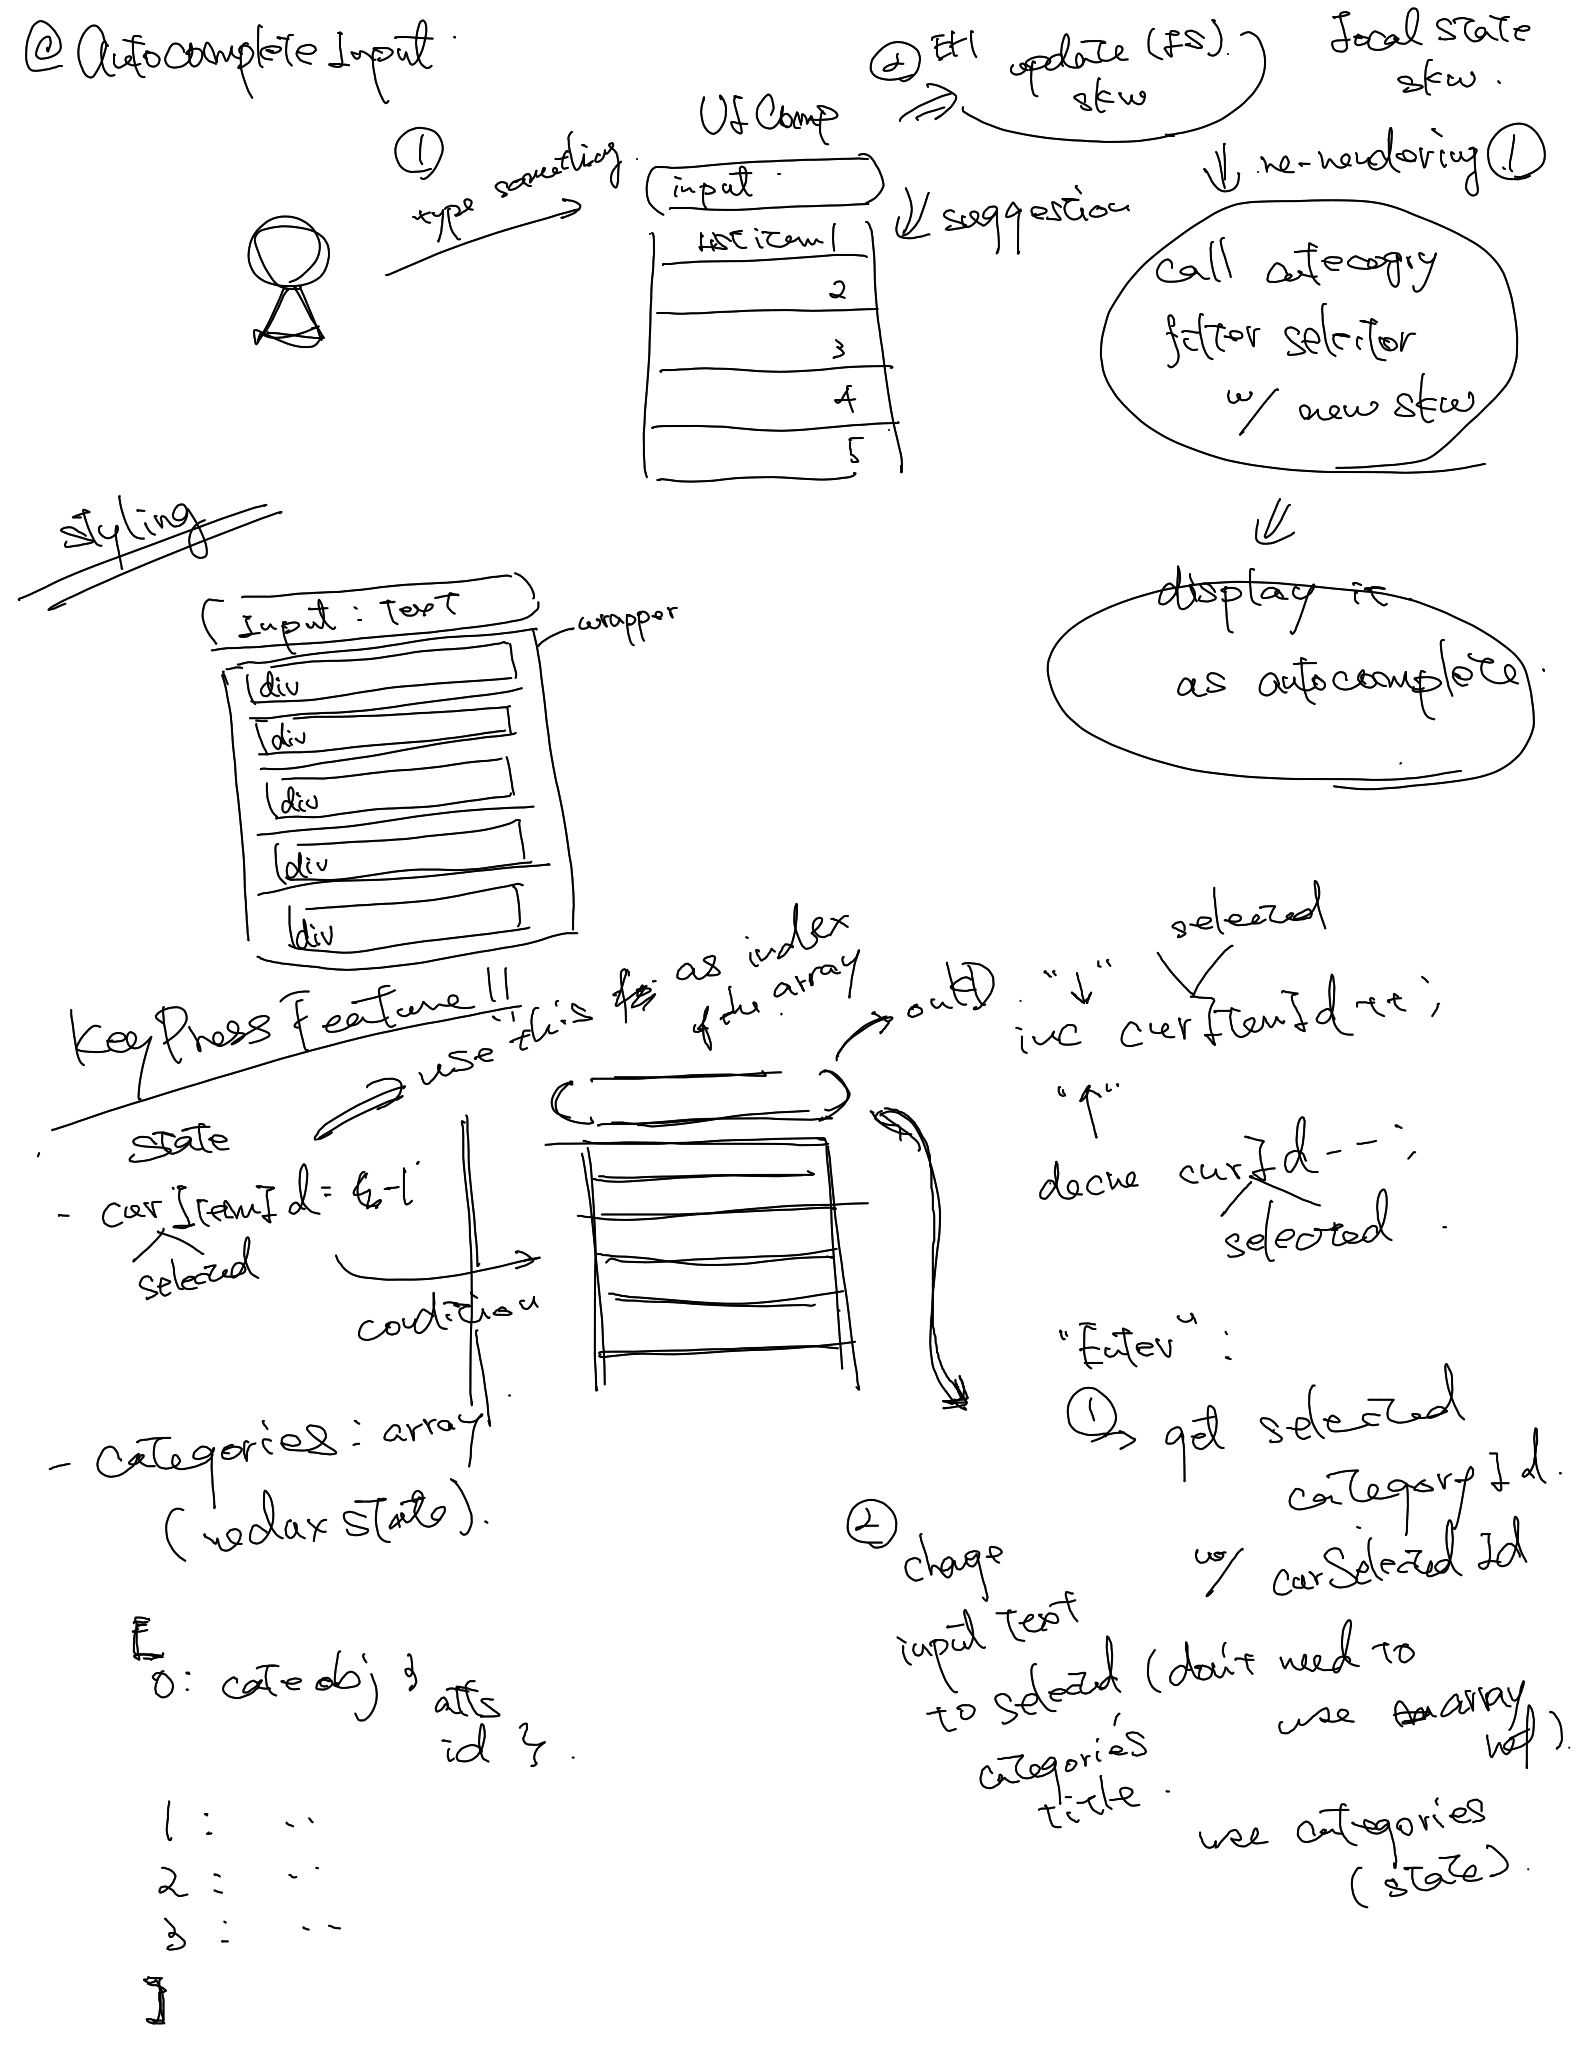 @ Autocomplete Input
① type something
UI Comp
input
list item 1
2
3
4
5
② EH update (LS)
skw
local state
skw.
suggestion
re-rendering ①
call category
filter selector
w/ new skw
display it
as autocomplete.
styling
Input : Text
wrapper
div
div
div
div
div
KeyPress Feature !!
use this as index
of the array
state
- curItemId = -1
selected
condition
- categories : array
(redux state).
[
0: cate obj {
atts
id }.
1 : ..
2 : ..
3 : ..
]
onKD. "↓"
selected
inc curItemId ++ ;
"↑"
decre curId -- ;
selected
"Enter" :
① get selected
category Id.
w/ curSelected Id
(don't need to
use array
ref).
use categories
(state).
② chage
input text
to selected
categories'
title.